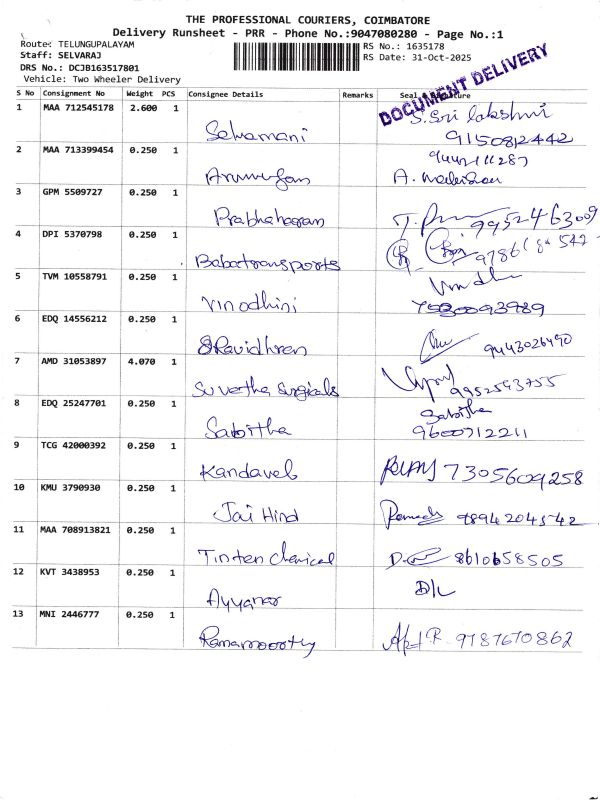 THE PROFESSIONAL COURIERS, COIMBATORE
Delivery Runsheet - PRR - Phone No.:9047080280 - Page No.:1
Route: TELUNGUPALAYAM
Staff: SELVARAJ
DRS No.: DCJB163517801
Vehicle: Two Wheeler Delivery
RS No.: 1635178
RS Date: 31-Oct-2025
DOCUMENT DELIVERY
S No Consignment No Weight PCS Consignee Details Remarks Seal
1 MAA 712545178 2.600 1 Selvamani S. Sri Lakshmi
9150812442
2 MAA 713399454 0.250 1 Arumugam
3 GPM 5509727 0.250 1 Prabhahagran 9952463009
4 DPI 5370798 0.250 1 Babatransports
5 TVM 10558791 0.250 1 Vinodhini
6 EDQ 14556212 0.250 1 9443026490
7 AMD 31053897 4.070 1 Suvetha Surgicals 9952593755
8 EDQ 25247701 0.250 1 Sabitha Sabitha
9600712211
9 TCG 42000392 0.250 1 Kandavel 7305609258
10 KMU 3790930 0.250 1 Jai Hind 9894204542
11 MAA 708913821 0.250 1 Tinten Chemical 8610658505
12 KVT 3438953 0.250 1 Ayyanar D/L
13 MNI 2446777 0.250 1 Ramamoorthy 9787670862